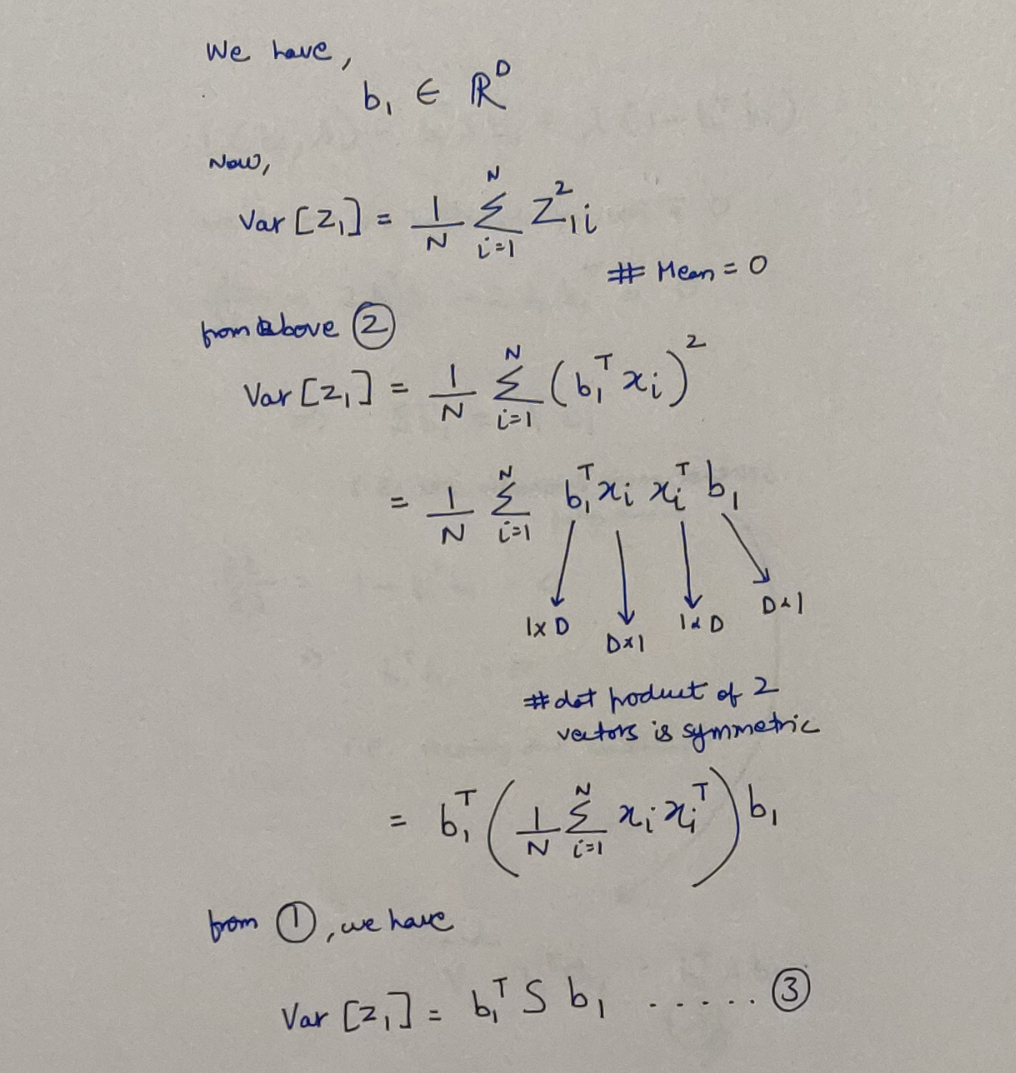 We have,
b₁ ∈ ℝᴰ
Now,
Var [z₁] = 1/N Σᵢ₌₁ᴺ z²₁ᵢ
# Mean = 0
from above ②
Var [z₁] = 1/N Σᵢ₌₁ᴺ (b₁ᵀ xᵢ)²
= 1/N Σᵢ₌₁ᴺ b₁ᵀ xᵢ xᵢᵀ b₁
1×D D×1 1×D D×1
# dot product of 2
vectors is symmetric
= b₁ᵀ (1/N Σᵢ₌₁ᴺ xᵢ xᵢᵀ) b₁
from ①, we have
Var [z₁] = b₁ᵀ S b₁ ..... ③